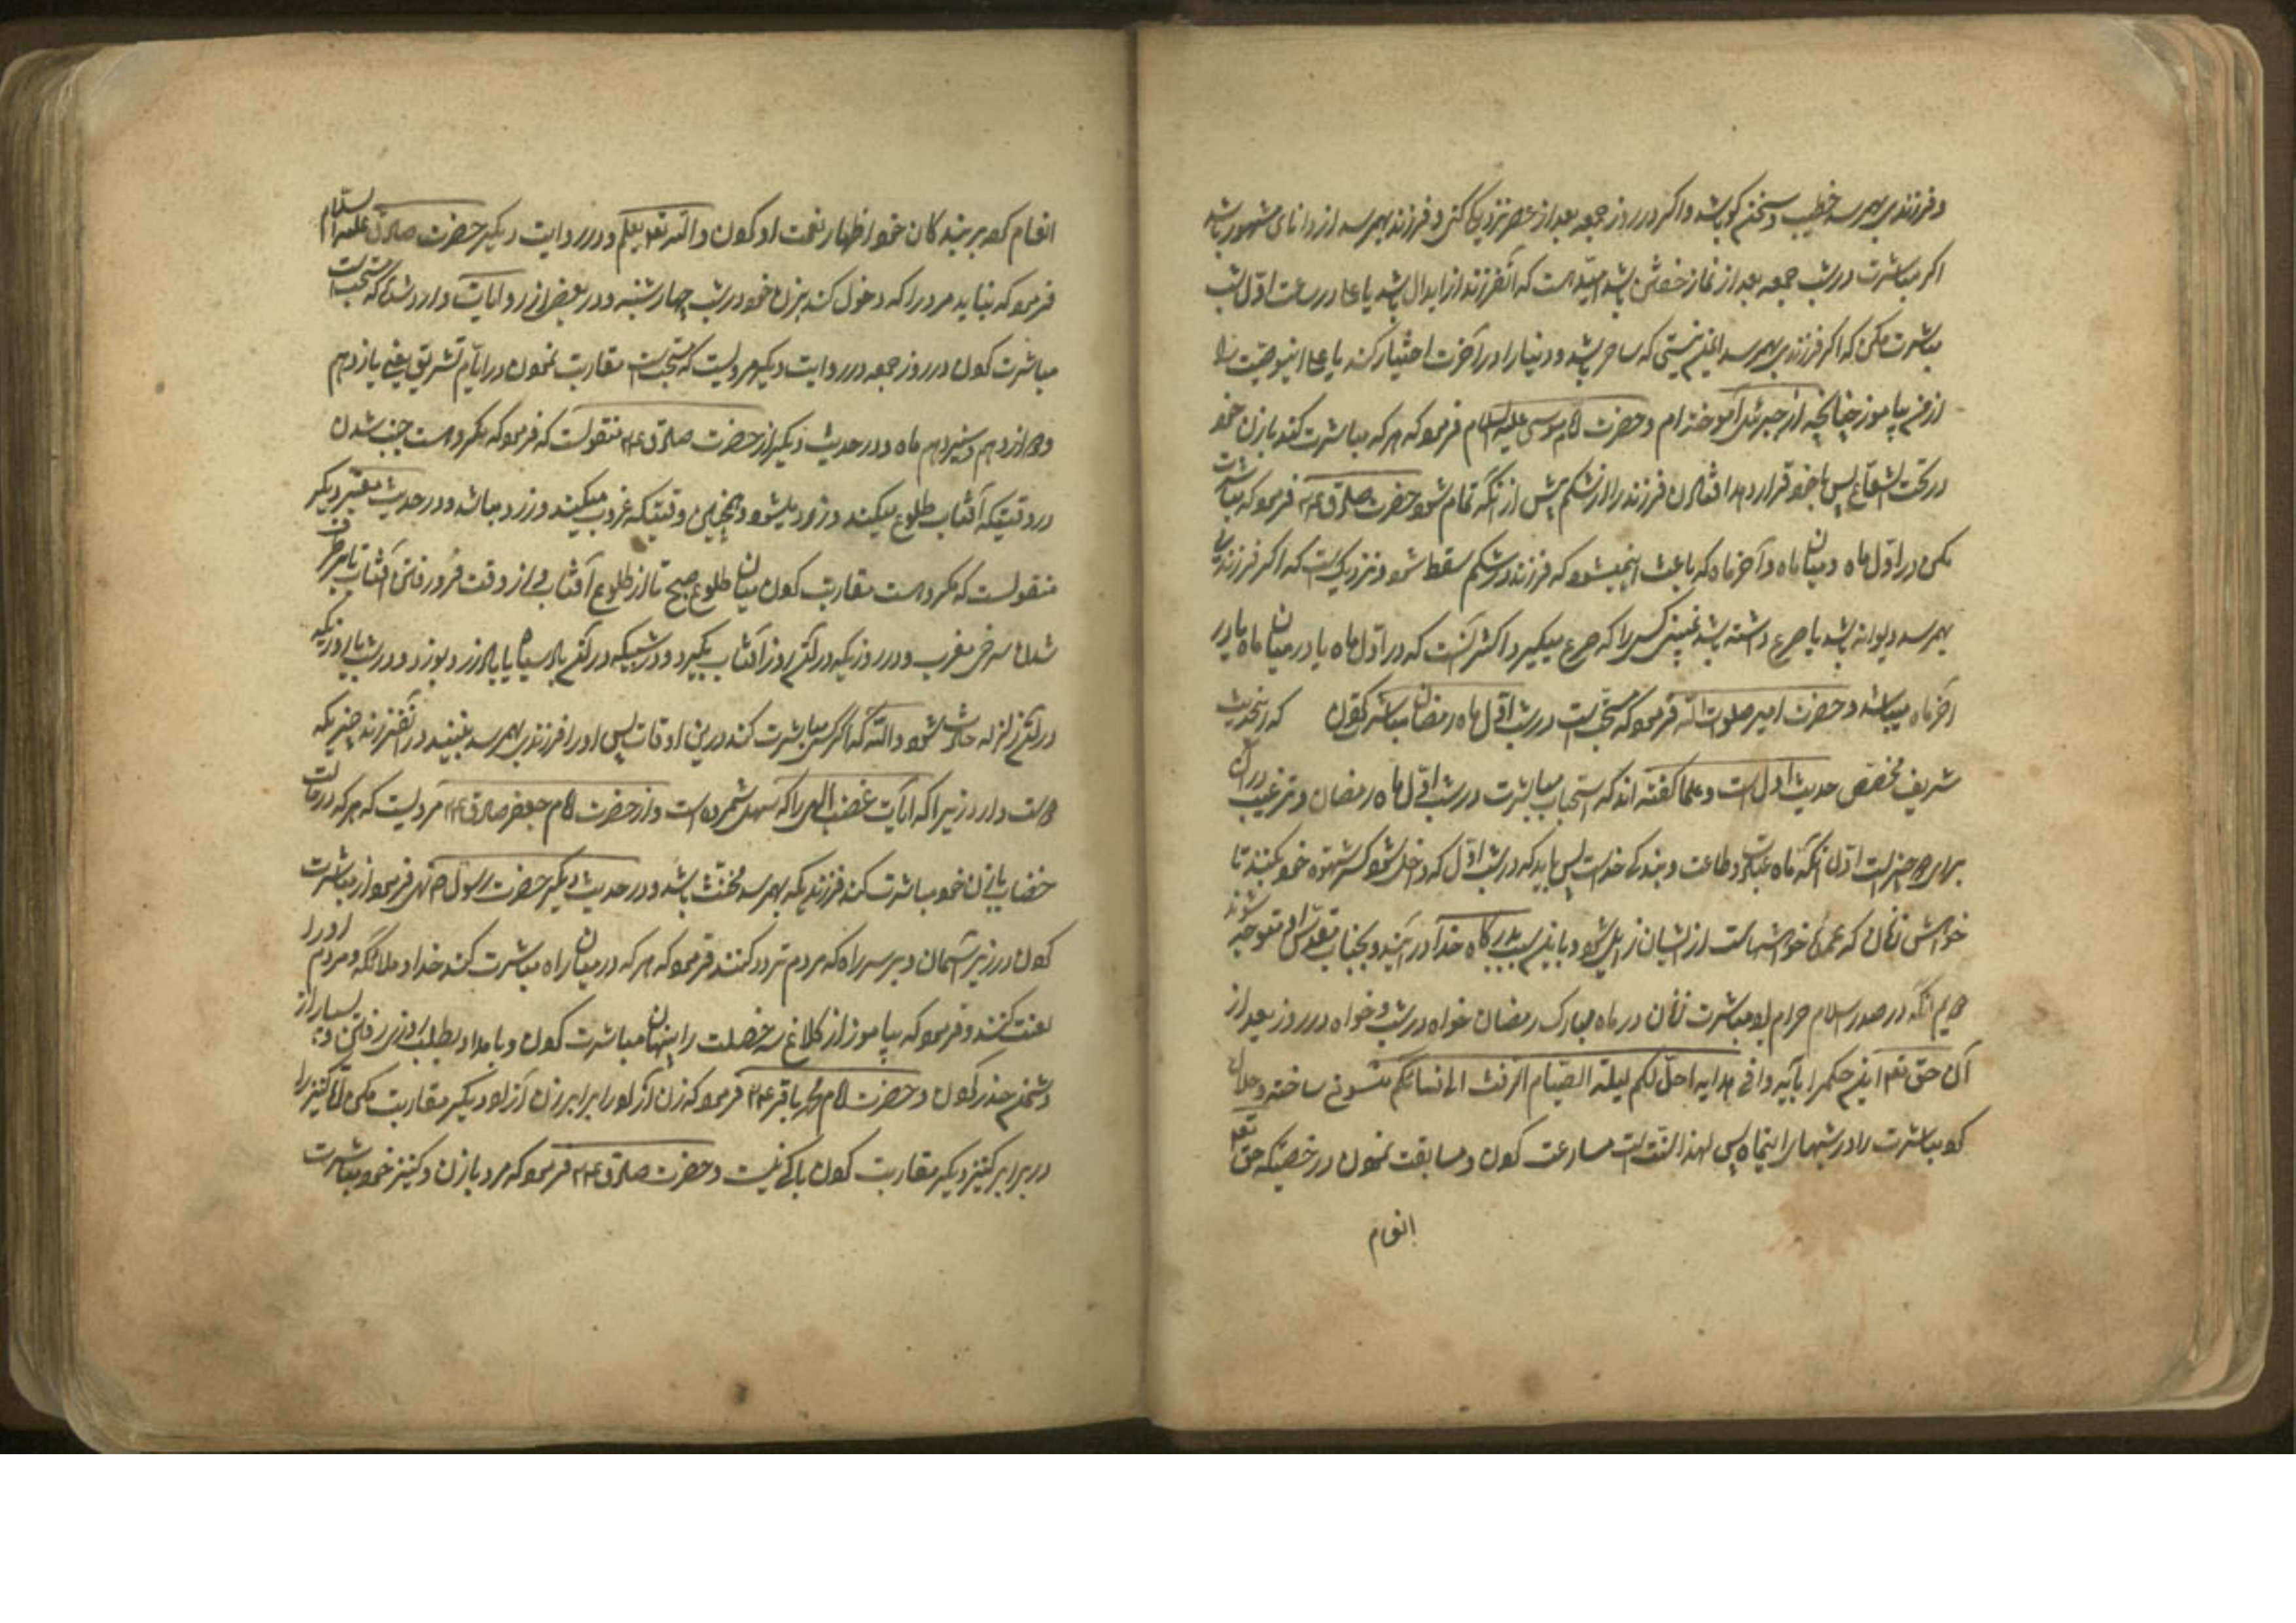 و فرزندی بهم رسد خطیب و سخن گو باشد و اگر در روز جمعه بعد از عصر نزدیکی کنی و فرزند بهم رسد از دانای مشهور باشد
اگر مباشرت در شب جمعه بعد از نماز خفتن باشد امید هست که آنفرزند از ابدال باشد یا علی در ساعت اول شب
مباشرت مکن که اگر فرزندی بهم رسد ایمن نیستی که ساحر باشد و دنیا را در آخرت اختیار کند یا علی این وصیت را
از من بیاموز چنانچه از جبرئیل آموخته‌ام و حضرت امام موسی علیه السلام فرمود که هر که مباشرت کند با زن خود
در تحت الشعاع پس با خود قرار دهد افتادن فرزند را از شکم پیش از آنکه تمام شود حضرت صادق ع فرمود که مباشرت
مکن در اول ماه و میان ماه و آخر ماه که باعث این میشود که فرزند در شکم سقط شود و نزدیک است که اگر فرزندی
بهم رسد دیوانه باشد یا صرع داشته باشد نمی‌بینی کسی را که صرع میگیرد اکثر آنست که در اول ماه یا در میان ماه یا در
آخر ماه میباشد و حضرت امیر صلوات الله فرمود که مستحب است در شب اول ماه رمضان مباشرت کردن که این حدیث
شریف مخصص حدیث اول است و علما گفته‌اند که استحباب مباشرت در شب اول ماه رمضان و ترغیب در آن
برای دو چیز است اول آنکه ماه عبادت و طاعت و بندگی خداست پس باید که در شب اول که داخل شود کسر شهوة خود بکنند تا
خواهش زنان که عمده خواهشهاست از ایشان زایل شود و بدرگاه خدا در آیند و بجناب مقدس او متوجه شوند
دویم آنکه در صدر اسلام حرام بود مباشرت زنان در ماه مبارک رمضان خواه در شب و خواه در روز بعد از
آن حق تعالی این حکم را بآیه وافی هدایه احل لکم لیلة الصیام الرفث الی نسائکم منسوخ ساخته و حلال
کرد مباشرت را در شبهای این ماه پس لهذا سنت است مسارعت کردن و مسابقت نمودن در رخصتیکه حق تعالی
انعام
انعام کرد بر بندگان خود اظهار نعمت او کردن و الله تعالی یعلم و در روایت دیگر حضرت صادق علیه السلام
فرمود که نباید مرد را که دخول کند بزن خود در شب چهارشنبه و در بعضی از روایات وارد شده که مستحب است
مباشرت کردن در روز جمعه در روایت دیگر مرویست که مستحب است مقاربت نمودن در ایام تشریق یعنی یازدهم
و دوازدهم و سیزدهم ماه و در حدیث دیگر از حضرت صادق ع منقولست که فرمود که مکروه است جنب شدن
در وقتیکه آفتاب طلوع میکند و زرد میشود و همچنین وقتیکه غروب میکند و زرد میباشد و در حدیث معتبر دیگر
منقولست که مکروه است مقاربت کردن میان طلوع صبح تا از طلوع آفتاب و از وقت فرو رفتن آفتاب تا برطرف
شدن سرخی مغرب و در روزیکه در آن روز آفتاب بگیرد و در شبیکه در آن باد سیاه یا باد زرد بوزد و در شب یا روزیکه
در آن زلزله حادث شود والله که اگر کسی مباشرت کند درین اوقات پس او را فرزندی بهم رسد نبیند در آن فرزند چیزیکه
دوست دارد زیرا که آیات غضب الهی را که سهل شمرده است و از حضرت امام جعفر صادق ع مرویست که هر که در حالت
خضاب با زن خود مباشرت کند فرزندیکه بهم رسد مخنث باشد و در حدیث دیگر حضرت رسول ص نهی فرمود از مباشرت
کردن در زیر آسمان و بر سر راه که مردم تردد کنند فرمود که هر که در میان راه مباشرت کند خدا و ملائکه و مردم او را
لعنت کنند و فرمود که بیاموز از کلاغ سه خصلت را پنهان مباشرت کردن و بامداد بطلب روزی رفتن و بسیار از
دشمن حذر کردن و حضرت امام محمد باقر ع فرمود که زن آزاد را برابر زن آزاد دیگر مقاربت مکن اما کنیز را
در برابر کنیز دیگر مقاربت کردن باکی نیست و حضرت صادق ع فرمود که مرد با زن و کنیز خود مباشرت